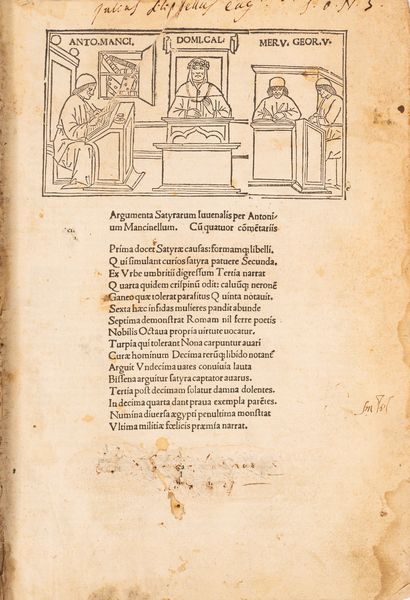 Julius
ANTO.MANCI. DOMI.CAL. MERV. GEOR.V.
Argumenta Satyrarum Iuuenalis per Antoni-
um Mancinellum. Cũ quatuor cõmẽtariis
Prima docet Satyræ causas: formamq; libelli.
Qui simulant curios satyra patuere Secunda.
Ex Vrbe umbritii digressum Tertia narrat
Quarta quidem crispinũ odit: caluũq; neronẽ
Ganeo quæ tolerat parasitus Quinta notauit.
Sexta hæc infidas mulieres pandit abunde
Septima demonstrat Romam nil ferre poetis
Nobilis Octaua propria uirtute uocatur.
Turpia qui tolerant Nona carpuntur auari
Curæ hominum Decima rerũq; libido notant᷑
Arguit Vndecima uates conuiuia lauta
Bissena arguitur satyra captator auarus.
Tertia post decimam solatur damna dolentes.
In decima quarta dant praua exempla parẽtes.
Numina diuersa ægypti penultima monstrat
Vltima militiæ fœlicis præmia narrat.